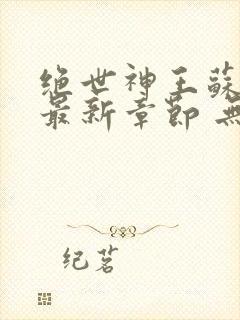 绝世神王蘇
最新章節 無
纪茗